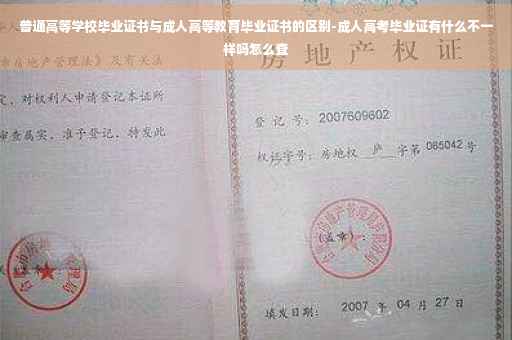 普通高等学校毕业证书与成人高等教育毕业证书的区别-成人高考毕业证有什么不一
样吗怎么查
房地产权证
市房地产管理法》及有关法
定，对权利人申请登记本证所
审查属实，准予登记，特发此
登记号：2007609602
权证字号：房地权 庐 字第 085042 号
(盖章)：
填发日期：2007 年 04 月 27 日